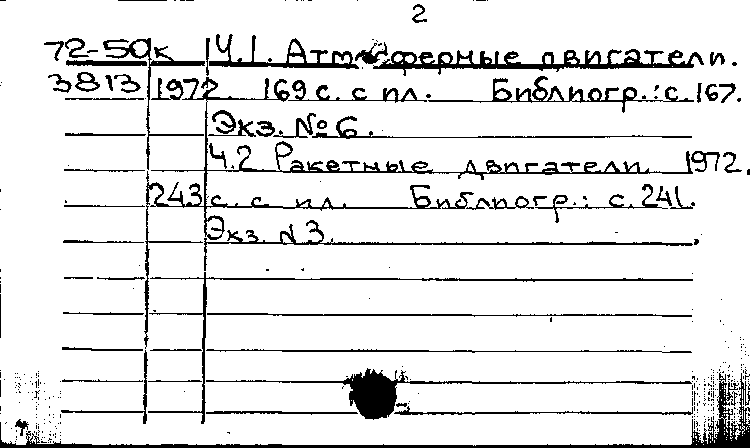 2
72-50к Ч.1. Атмосферные двигатели.
3813 1972. 169 с. с ил. Библиогр.: с. 167.
Экз. №6.
Ч.2 Ракетные двигатели 1972.
243 с. с ил. Библиогр.: с. 241.
Экз. N 3.